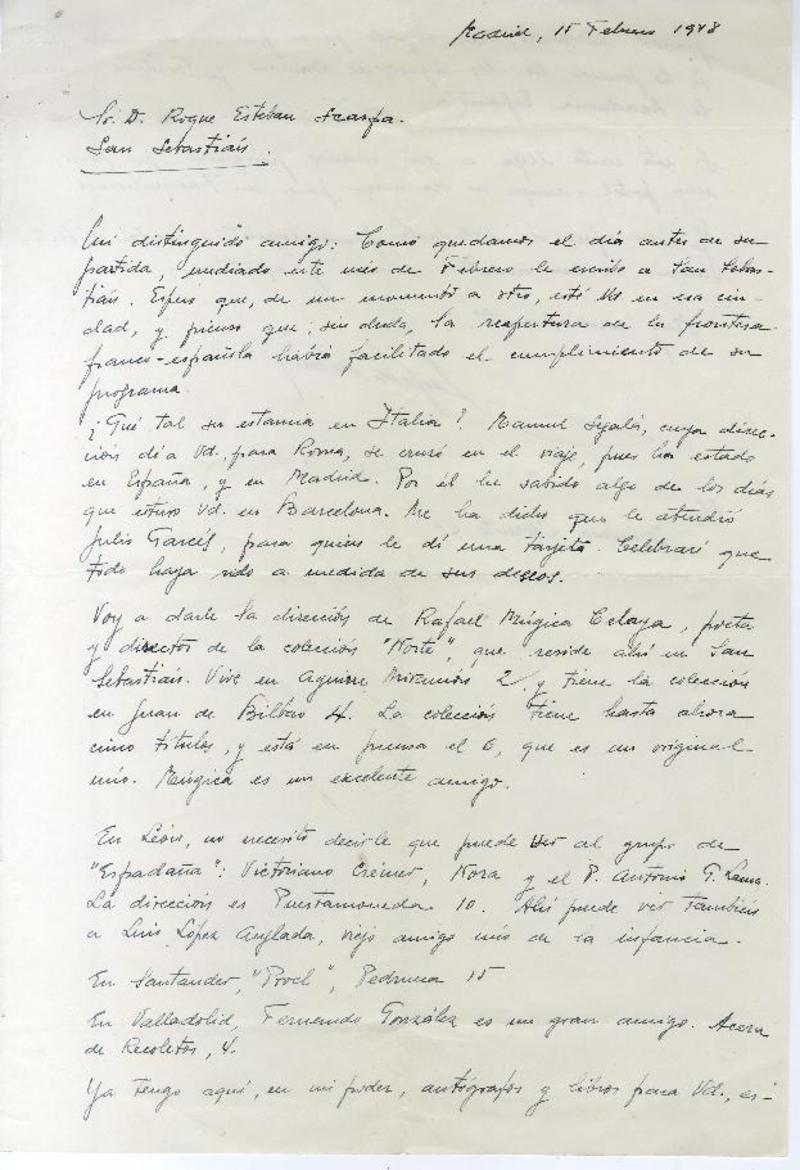 Madrid, 15 Febrero 1948
Sr. D. Roque Esteban Scarpa.
San Sebastián.
Mi distinguido amigo: Como quedamos el día antes de su
partida, mediado este mes de Febrero le escribo a San Sebas-
tián. Espero que, de un momento a otro, esté Vd en esa ciu-
dad, y pienso que, sin duda, la reapertura de la frontera
franco-española habrá facilitado el cumplimiento de su
programa.
¿Qué tal su estancia en Italia? Manuel Segalá, cuya direc-
ción di a Vd., para Roma, se cruzó en el viaje, pues ha estado
en España, y en Madrid. Por él he sabido algo de los días
que estuvo Vd. en Barcelona. Me ha dicho que le atendió
Julio Garcés, para quien le dí una tarjeta. Celebraré que
todo haya sido a medida de sus deseos.
Voy a darle la dirección de Rafael Múgica Celaya, poeta
y director de la colección "Norte", que reside ahí en San
Sebastián. Vive en Aguirre Miramón 2, y tiene la colección
en Juan de Bilbao 4. La colección tiene hasta ahora
cinco títulos, y está en prensa el 6, que es un original
mío. Múgica es un excelente amigo.
En León, no necesito decirle que puede ver al grupo de
"Espadaña": Victoriano Crémer, Nora y el P. Antonio G. Lama.
La dirección es Puertamoneda 10. Ahí puede ver también
a Luis López Anglada, viejo amigo mío de la infancia.
En Santander, "Proel", Pedrueca 15
En Valladolid, Fernando González es un gran amigo. Acera
de Recoletos, 4.
Ya tengo aquí, en mi poder, autógrafos y libros para Vd., es-